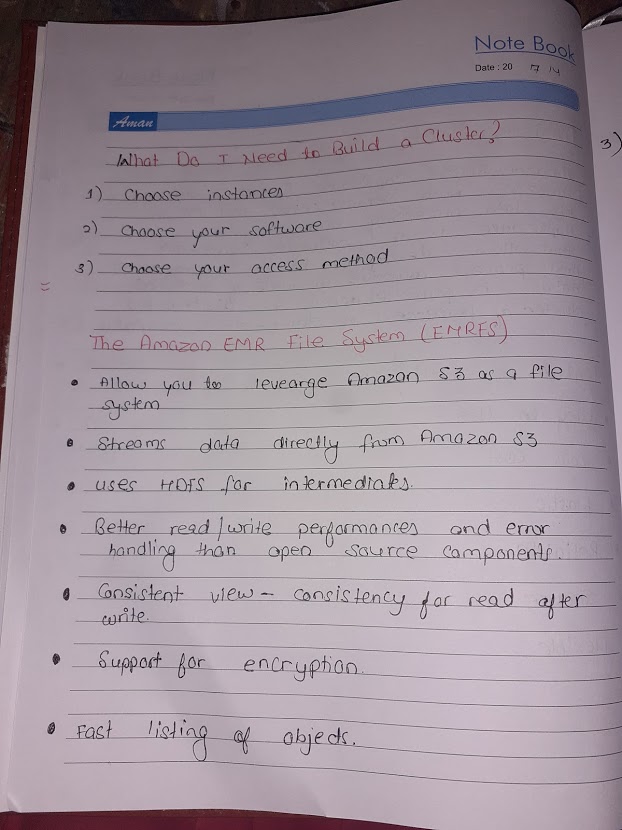 Note Book
Date : 20 7 14
Aman
What Do I Need to Build a Cluster?
3)
1) Choose instances
2) Choose your software
3) Choose your access method
=
The Amazon EMR File System (EMRFS)
• Allow you to levearge Amazon S3 as a file
system
• Streams data directly from Amazon S3
• uses HDFS for intermediats.
• Better read/write performances and error
handling than open source components.
• Consistent view – consistency for read after
write.
• Support for encryption.
• Fast listing of objects.